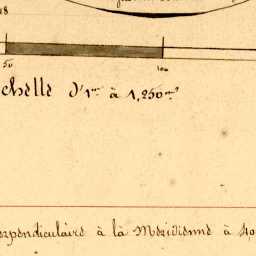 50 100
chelle d'1m à 1,250m
erpendiculaire à la Meridienne à 40